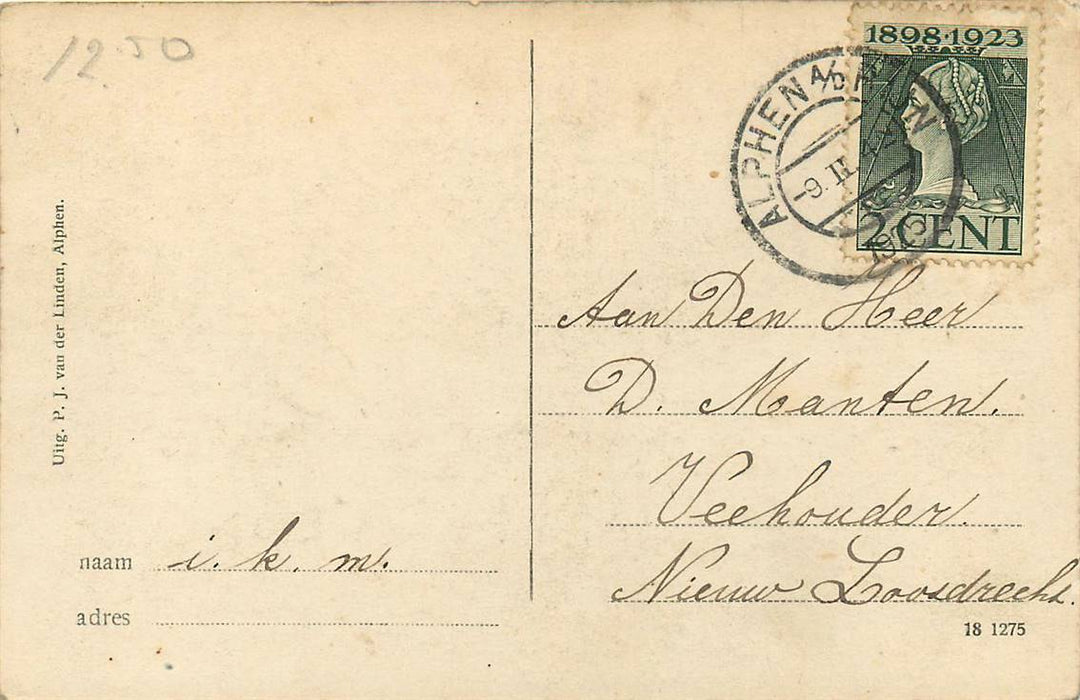 12.50
1898·1923
2 CENT
ALPHEN A/D RIJN
9.II.
1923
Uitg. P. J. van der Linden, Alphen.
Aan Den Heer
D. Manten.
Veehouder.
Nieuw Loosdrecht.
naam i. k. m.
adres
18 1275